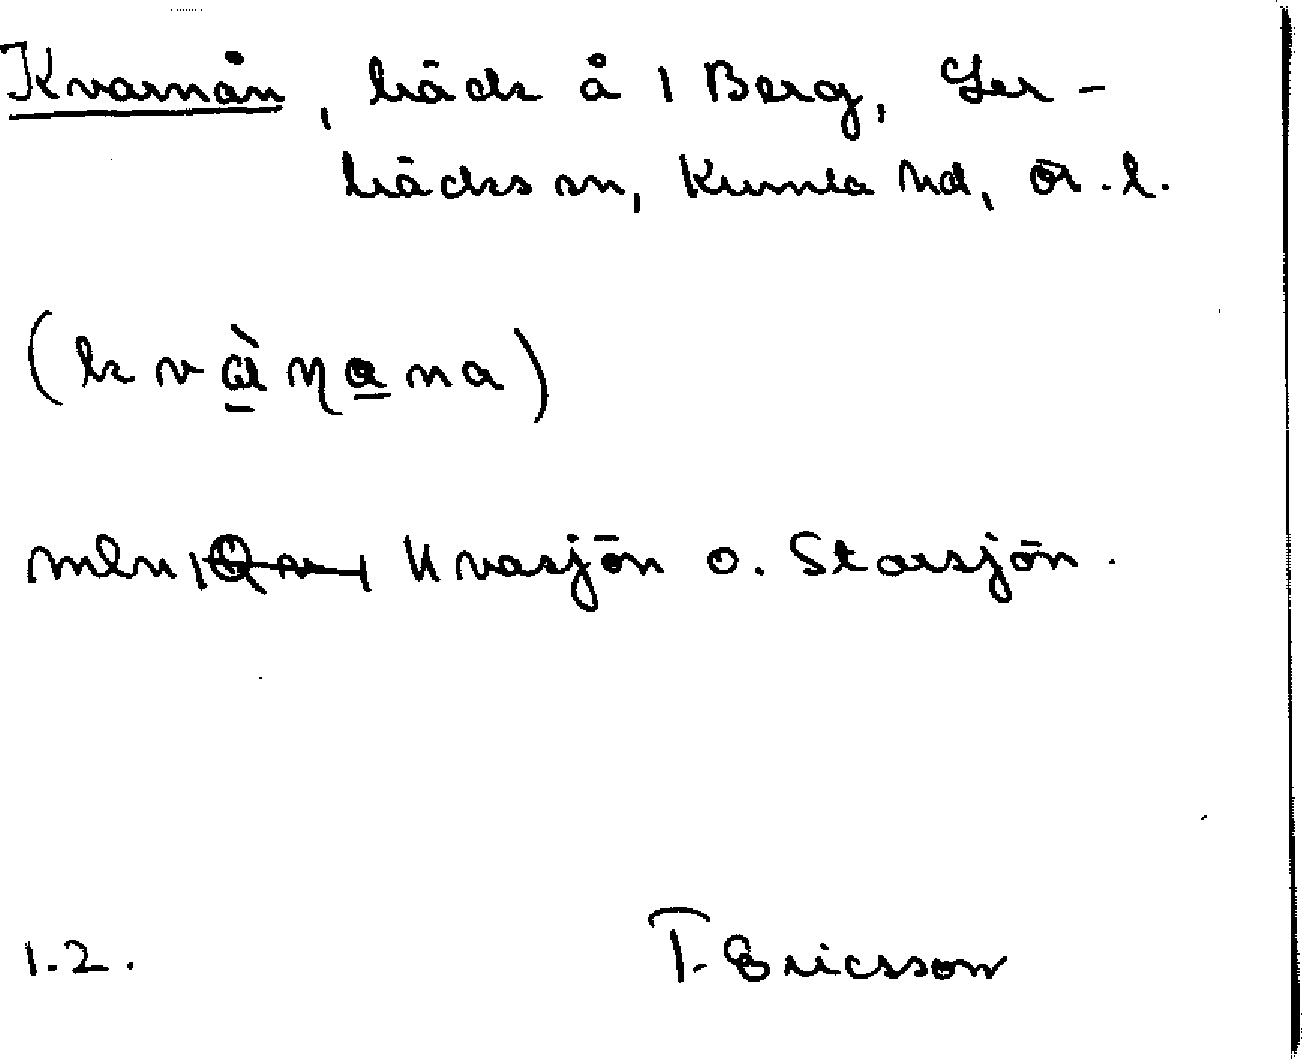 Kvarnån, bäck å 1 Berg, Ler-
bäcks sn, Kumla hd, ör. l.
(kvàṇana)
mln Kvasjön o. Storsjön.
1.2.
T. Ericsson